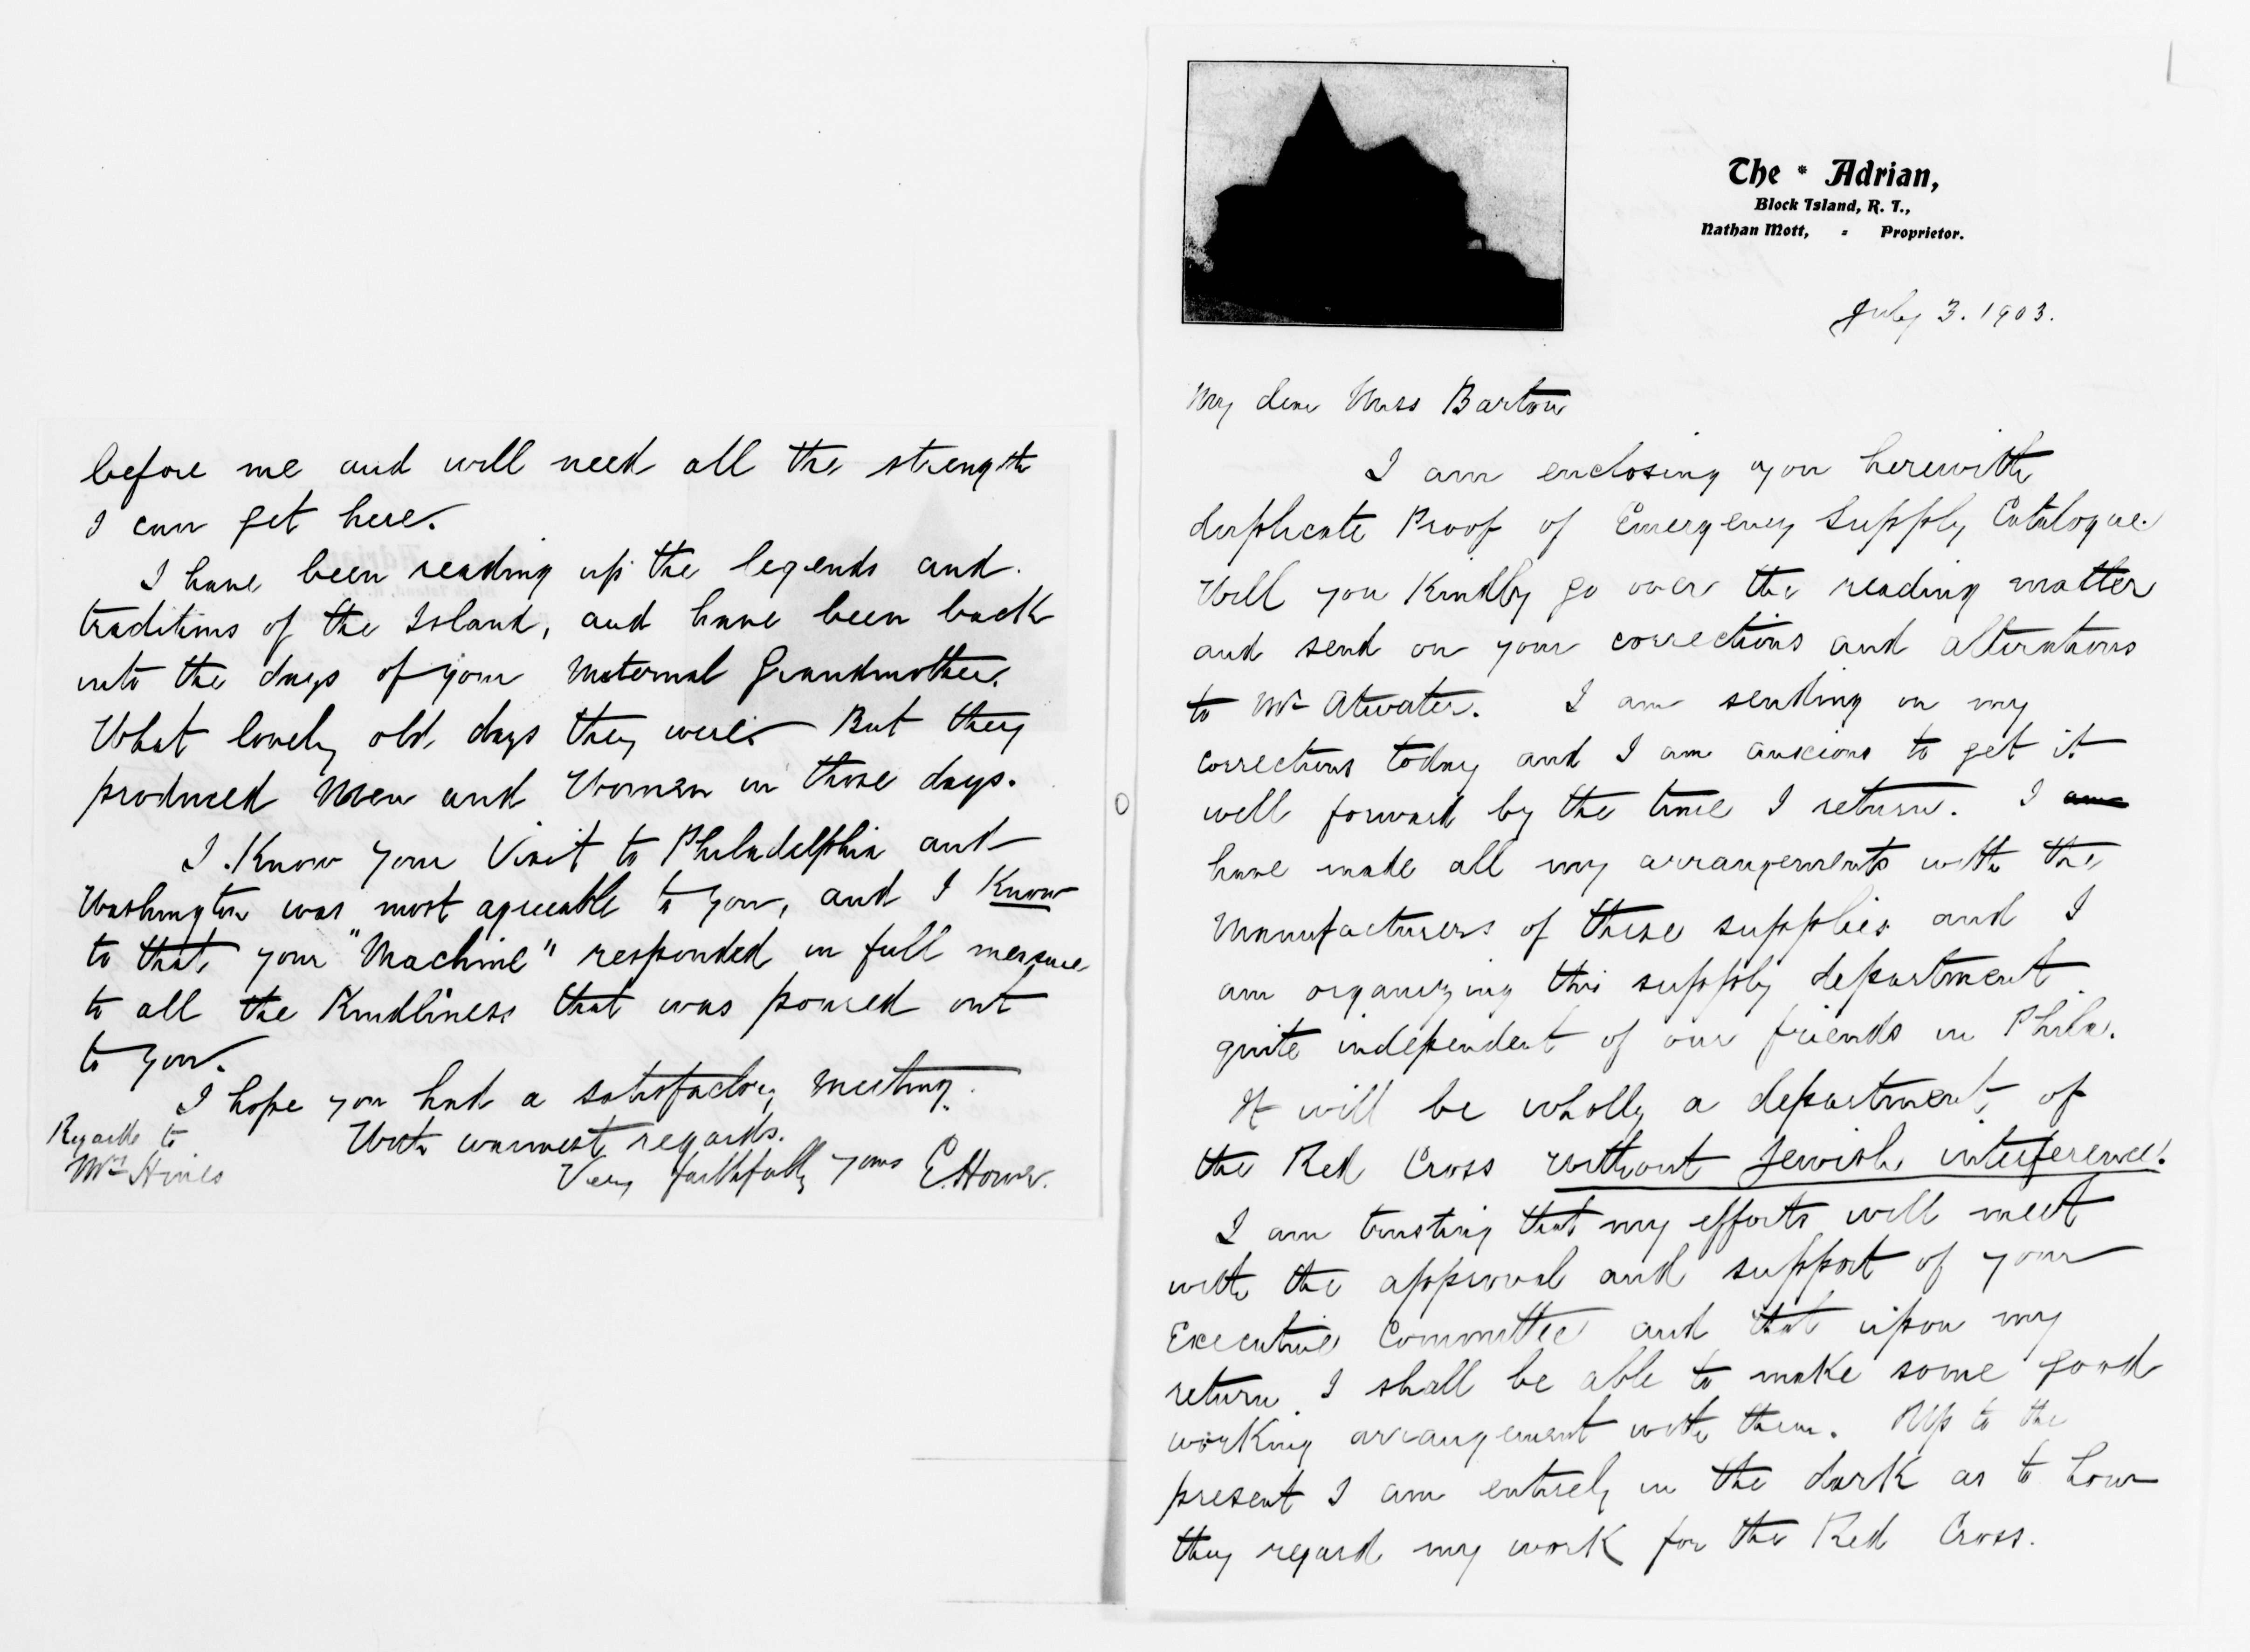 The * Adrian,
Block Island, R. I.,
Nathan Mott, = Proprietor.
July 3. 1903.
My dear Miss Barton
I am enclosing you herewith
duplicate Proof of Emergency Supply Catalogue.
Will you Kindly go over the reading matter
and send on your corrections and alterations
to Mr Atwater. I am sending on my
corrections today and I am anxious to get it
well forward by the time I return. I am
have made all my arrangements with the
Manufacturers of these supplies and I
am organizing this supply department
quite independent of our friends in Phila.
It will be wholly a department of
the Red Cross without Jewish interference.
I am trusting that my efforts will meet
with the approval and support of your
Executive Committee and that upon my
return I shall be able to make some good
working arrangement with them. Up to the
present I am entirely in the dark as to how
they regard my work for the Red Cross.
before me and will need all the strength
I can get here.
I have been reading up the legends and
traditions of the Island, and have been back
into the days of your Maternal Grandmother.
What lovely old days they were. But they
produced Men and Women in those days.
I Know your Visit to Philadelphia and
Washington was most agreeable to you, and I Know
to that your "Machine" responded in full measure
to all the Kindliness that was poured out
to you.
I hope you had a satisfactory Meeting.
With warmest regards.
Very faithfully yours E. Howe.
Regards to
Mrs Hines